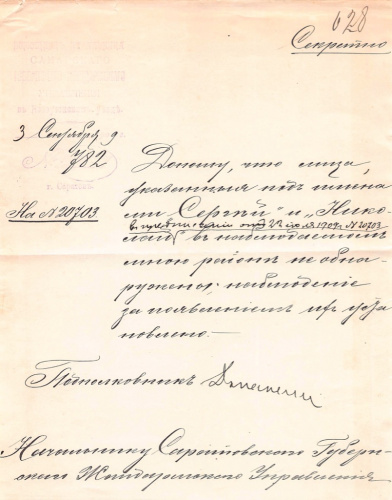 628
Секретно
3 Сентября 9
782
На № 20703
Доношу, что лица,
указанныя подъ именами
ми "Сергѣй" и "Нико-
въ предписании отъ 22 июля 1909 г. № 20703
лай" въ наблюдаемомъ
мною районѣ не обна-
ружено: наблюденіе
за появленіемъ их уста
новлено.
Подполковникъ
Начальнику Саратовского Губерн-
скаго Жандармскаго Управления